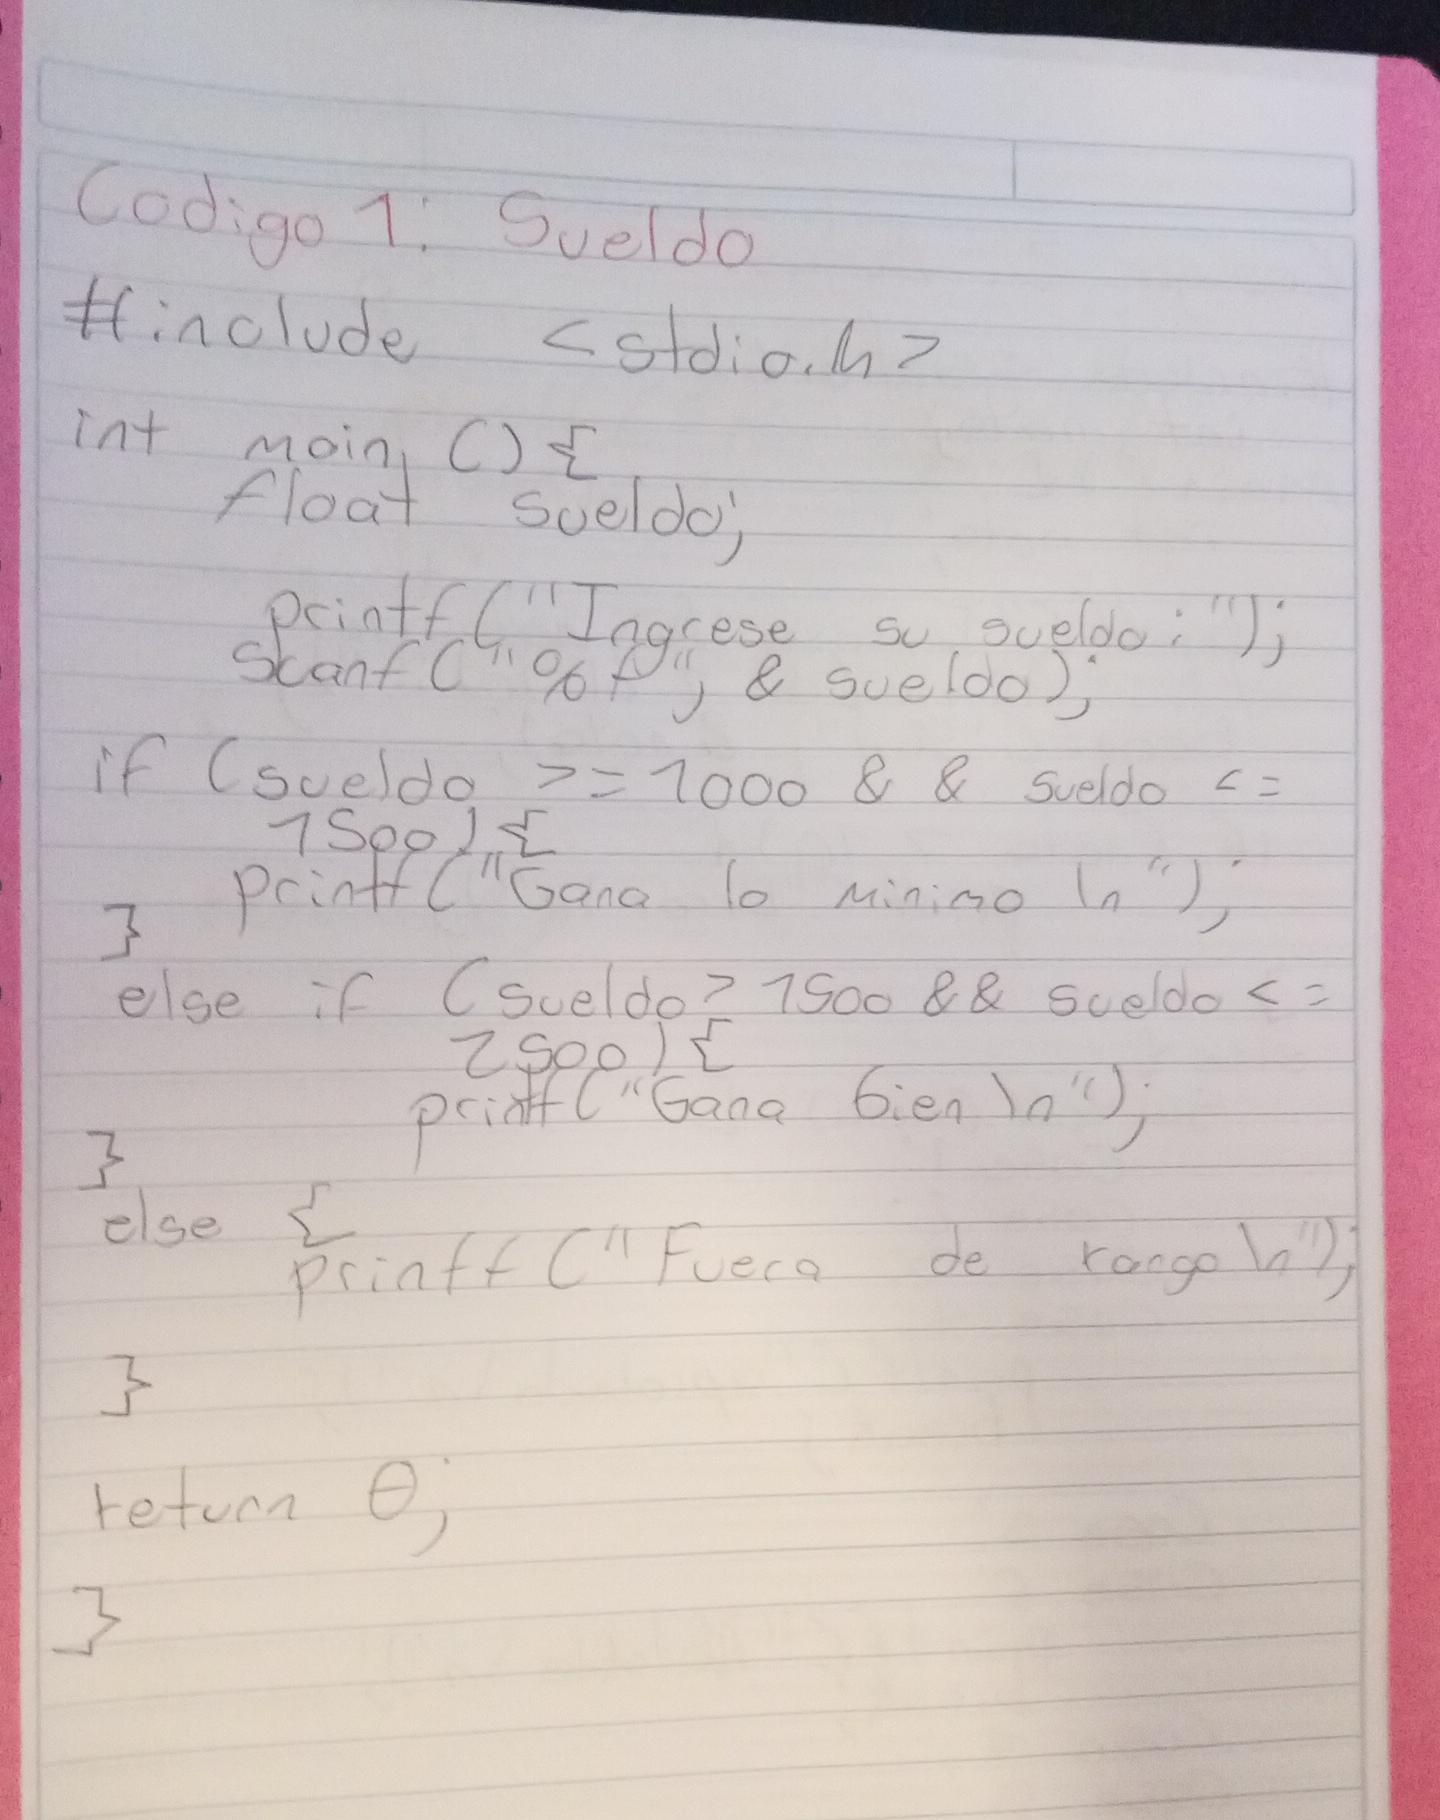 Codigo 1: Sueldo
#include <stdio.h>
int main () {
float sueldo;
printf ("Ingrese su sueldo: ");
scanf ("%f", & sueldo);
if (sueldo >= 1000 & & sueldo <=
1500) {
printf ("Gana lo minimo \n");
}
else if (sueldo > 1500 && sueldo <=
2500) {
printf ("Gana bien \n");
}
else {
printf ("Fuera de rango \n");
}
return 0;
}